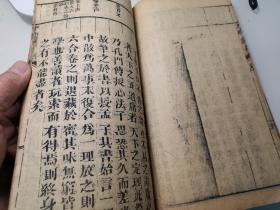 者天下之正道庸者天下之定理此
乃孔門傳授心法子思恐其久而差
故筆之於書以授孟子其書始言一
中散爲萬事末復合爲一理放之則
六合卷之則退藏於密其味無窮皆
學也善讀者玩索而有得焉則終身
之有不能盡者矣